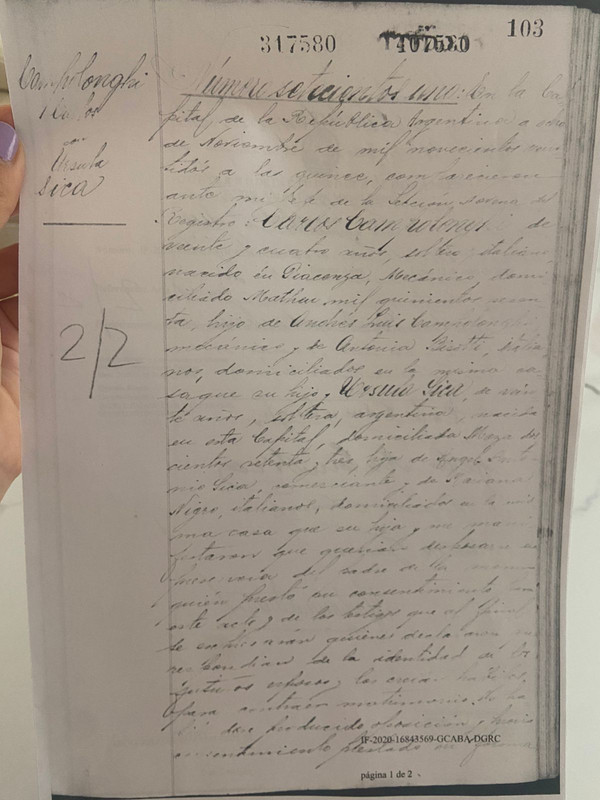 317580
103
Campolonghi
Carlos
con
Ursula
Sica
2/2
Número setecientos uno: En la Ca-
pital de la República Argentina a
de Noviembre de mil novecientos vein-
tidós a las quince, comparecieron
ante mi Jefe de la Sección
Registro: Carlos Campolonghi de
veinte y cuatro años, soltero, italiano,
nacido en Piacenza, Mecánico, domi-
ciliado Matheu mil quinientos
ta, hijo de Andrés Luis Campolonghi
mecánico y de Antonia italia-
nos, domiciliados en la misma ca-
sa que su hijo y Ursula Sica, de vein-
te años, soltera, argentina, nacida
en esta Capital, domiciliada Maza dos-
cientos setenta y tres, hija de Angel Anto-
nio Sica, comerciante y de Mariana
Nigro, italianos, domiciliados en la mis-
ma casa que su hija y me mani-
festaron que querían desposarse en
presencia del padre de la
quién prestó su consentimiento
este acto y de los testigos que al final
se expresarán quiénes declararon que
respondían de la identidad de los
futuros esposos y los creían hábiles
para contraer matrimonio. No ha-
producido oposición y
consentimiento prestado en forma
IF-2020-16843569-GCABA-DGRC
página 1 de 2